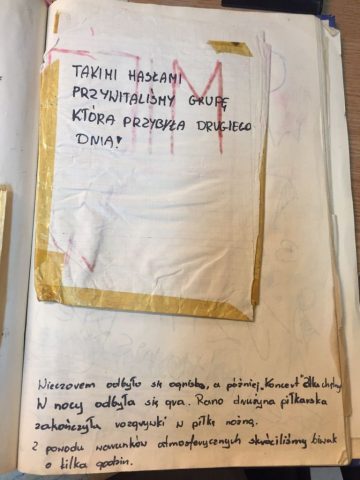 TAKIMI HASŁAMI
PRZYWITALIŚMY GRUPĘ
KTÓRA PRZYBYŁA DRUGIEGO
DNIA!
Wieczorem odbyło się ognisko, a później „Koncert” dla chętnych
W nocy odbyła się gra. Rano drużyna piłkarska
zakończyła rozgrywki w piłkę nożną.
Z powodu warunków atmosferycznych skróciliśmy biwak
o kilka godzin.